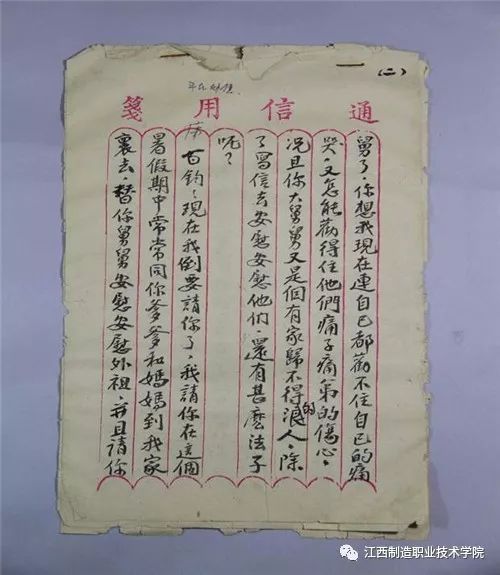 (二)
通信用箋
舅了。你想我現在連自己都勸不住自己的痛
哭。又怎能勸得住他們痛子痛弟的傷心。
况且你大舅舅又是個有家歸不得的浪人。除
了寫信去安慰安慰他们。還有甚麽法子
呢？
百鈞：現在我倒要請你了。我請你在這個
暑假期中常常同你爹爹和媽媽到我家
裏去。替你舅舅安慰安慰外祖。并且請你
江西制造职业技术学院